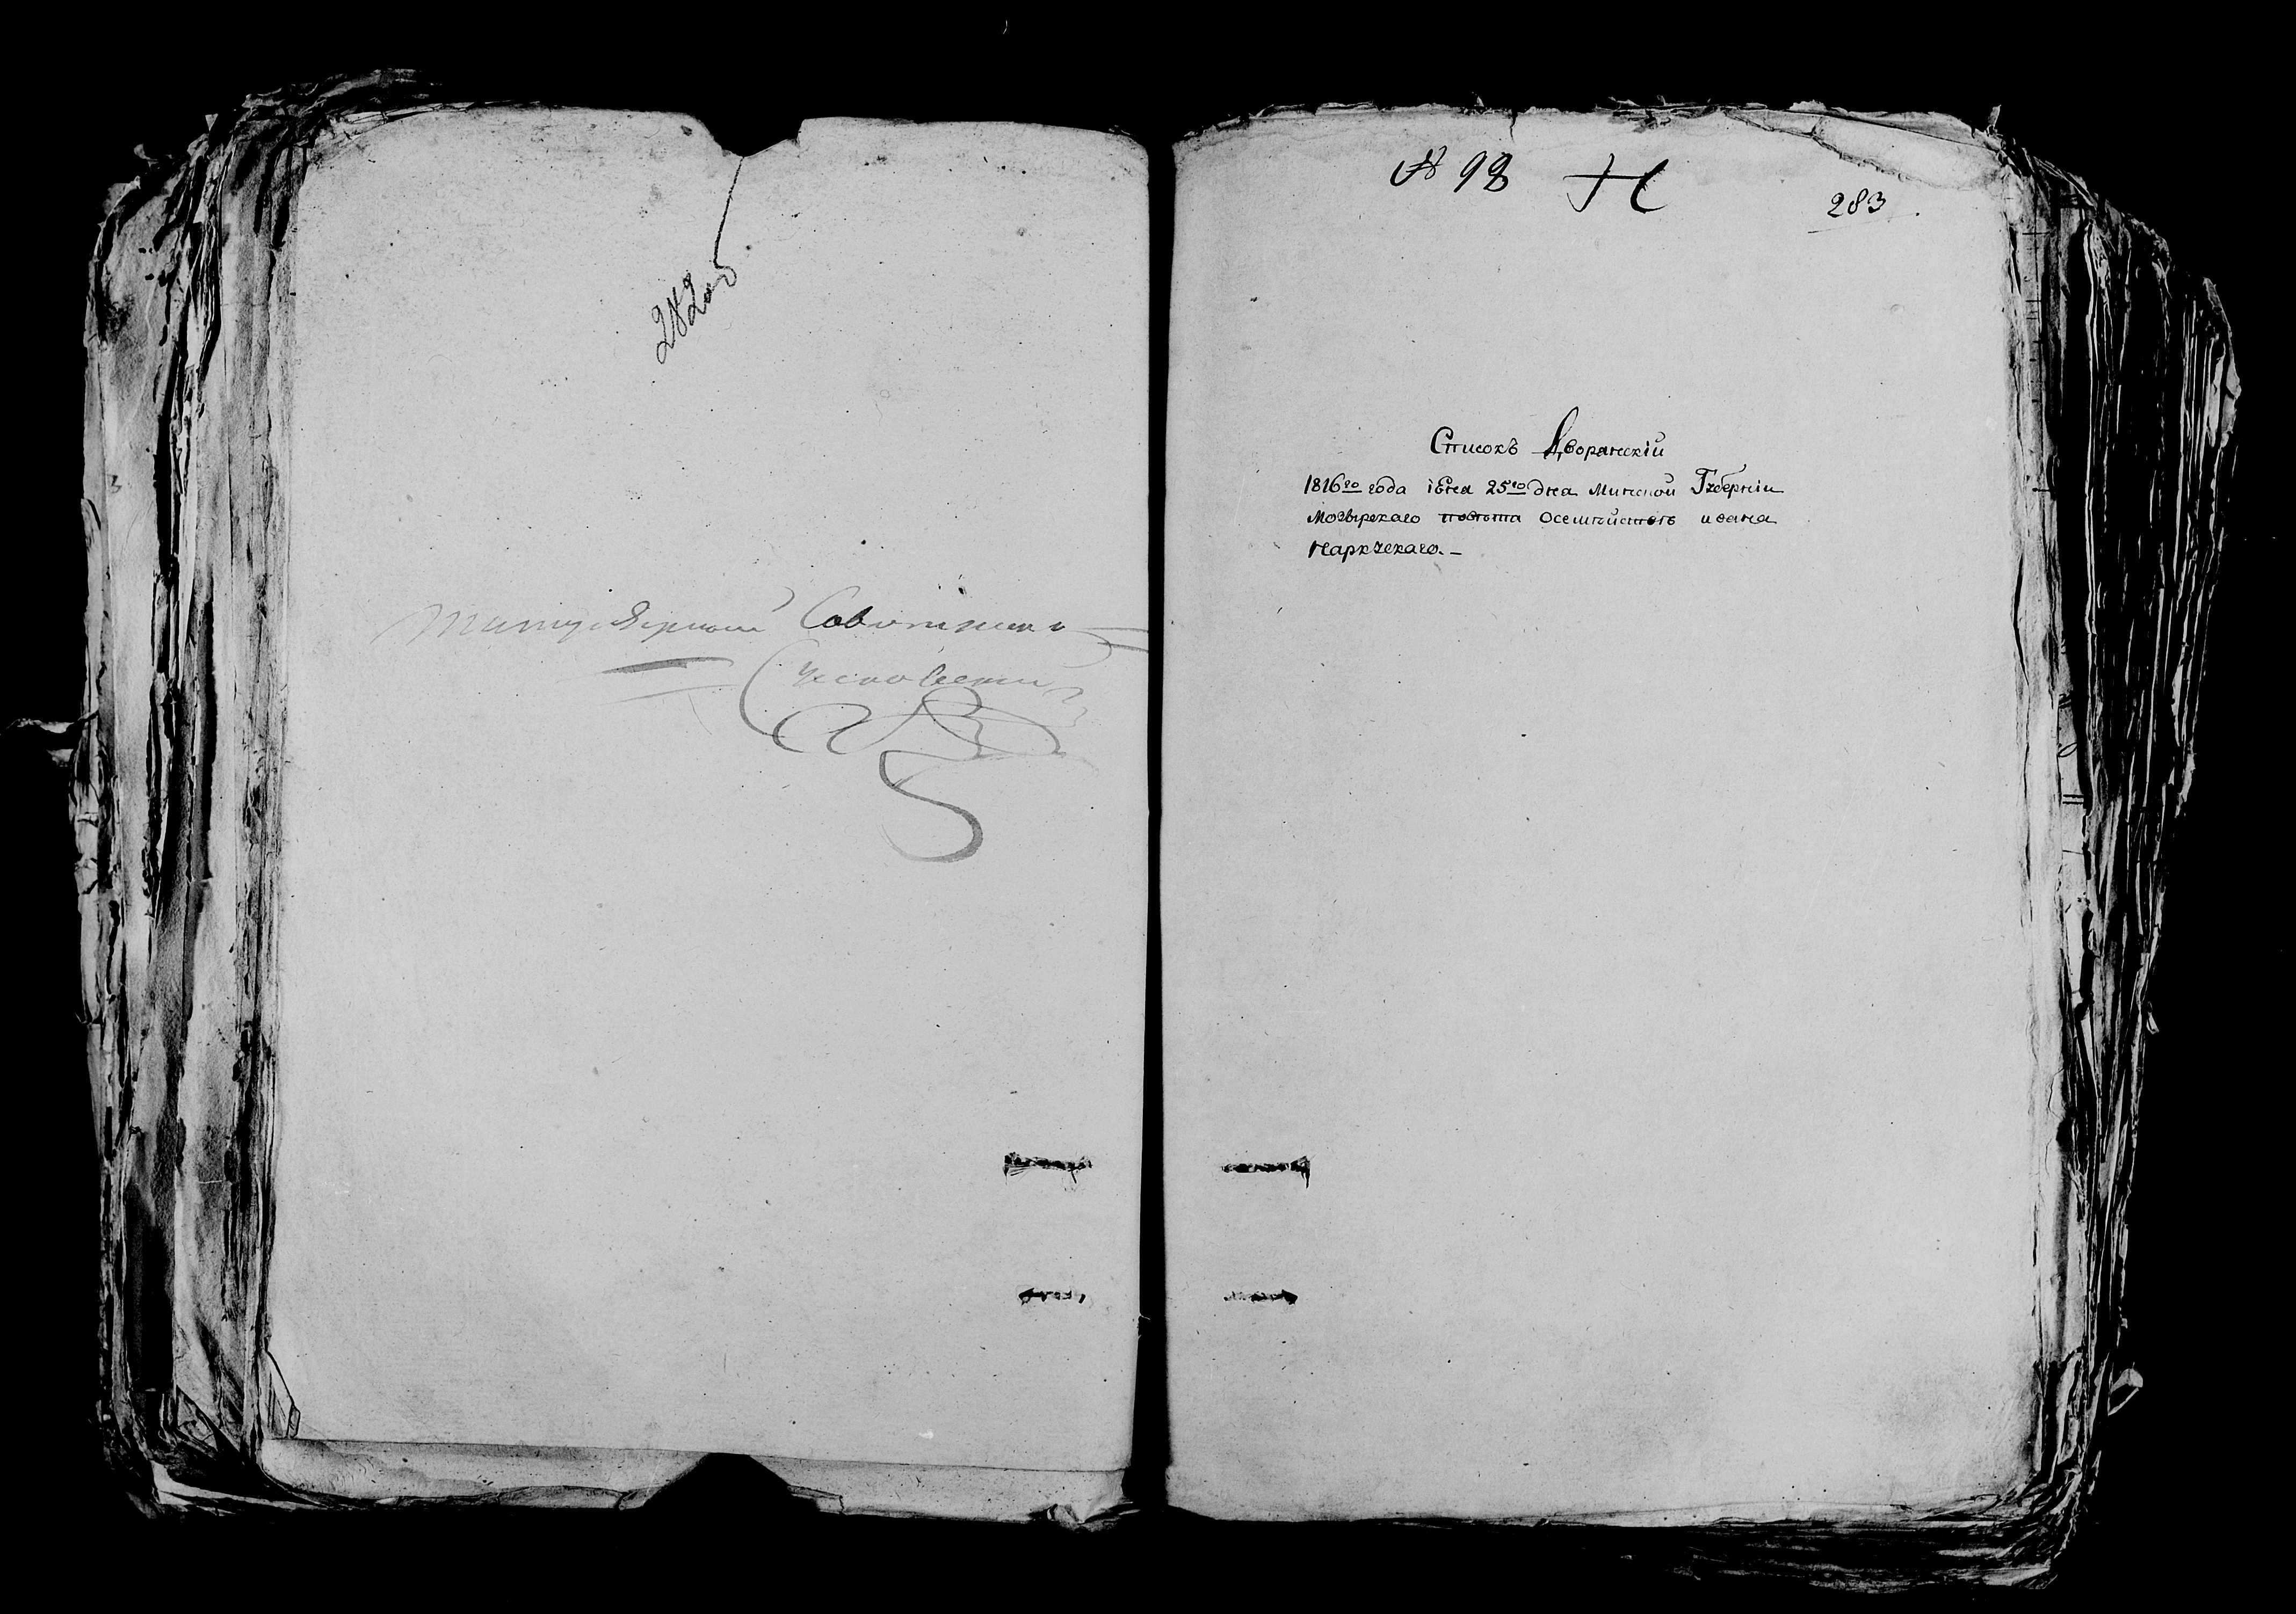 282об
Титулярный Советникъ
№ 98 Н
283
Списокъ Дворянскій
1816го года іюня 25го дня Минской Губерніи
Мозырскаго повѣта осемнйствъ ивана
Наркускаго.